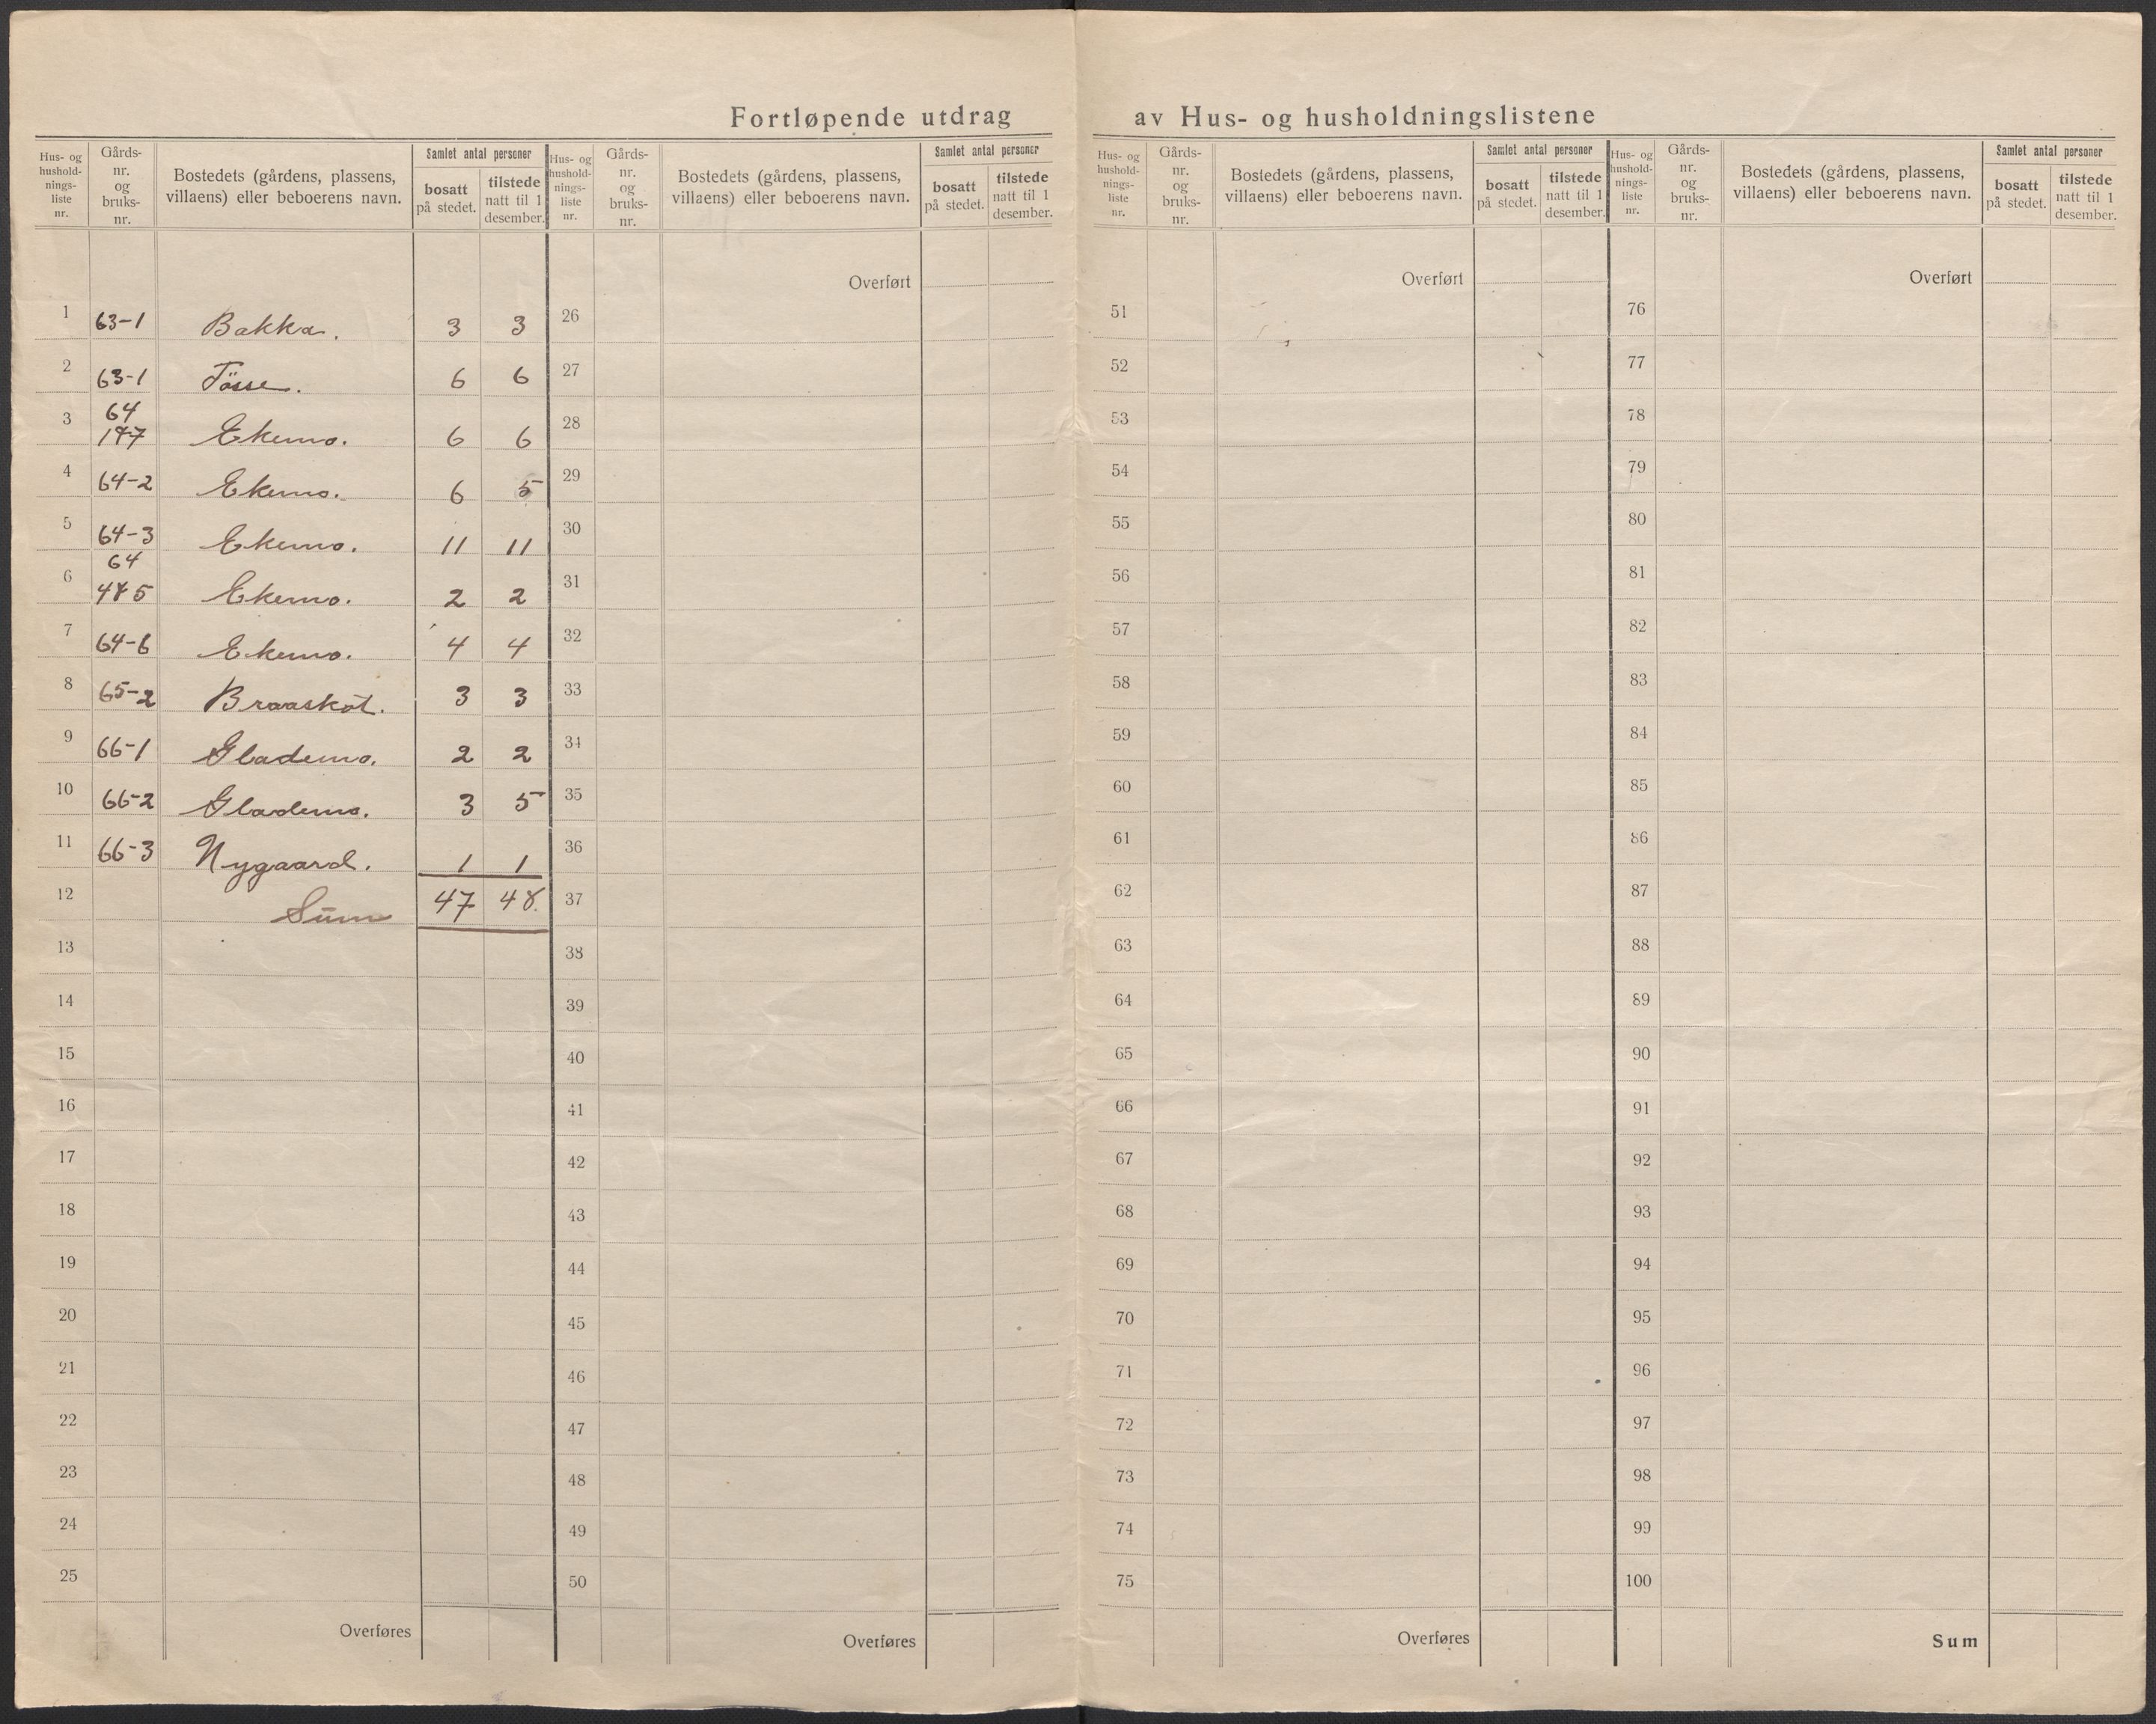 Fortløpende utdrag av Hus- og husholdningslistene
Hus- og hushold-nings-liste nr. Gårds-nr. og bruks-nr. Bostedets (gårdens, plassens, villaens) eller beboerens navn. Samlet antal personer bosatt på stedet. tilstede natt til 1 desember.
1 63-1 Bakka. 3 3
2 63-1 Tösse. 6 6
3 64 1+7 Ekemo. 6 6
4 64-2 Ekemo. 6 5
5 64-3 Ekemo. 11 11
6 64 4+5 Ekemo. 2 2
7 64-6 Ekemo. 4 4
8 65-2 Braasköt. 3 3
9 66-1 Glademo. 2 2
10 66-2 Glademo. 3 5
11 66-3 Nygaard. 1 1
12 Sum 47 48.
13
14
15
16
17
18
19
20
21
22
23
24
25
Overføres
Hus- og hushold-nings-liste nr. Gårds-nr. og bruks-nr. Bostedets (gårdens, plassens, villaens) eller beboerens navn. Samlet antal personer bosatt på stedet. tilstede natt til 1 desember.
Overført
26
27
28
29
30
31
32
33
34
35
36
37
38
39
40
41
42
43
44
45
46
47
48
49
50
Overføres
Hus- og hushold-nings-liste nr. Gårds-nr. og bruks-nr. Bostedets (gårdens, plassens, villaens) eller beboerens navn. Samlet antal personer bosatt på stedet. tilstede natt til 1 desember.
Overført
51
52
53
54
55
56
57
58
59
60
61
62
63
64
65
66
67
68
69
70
71
72
73
74
75
Overføres
Hus- og hushold-nings-liste nr. Gårds-nr. og bruks-nr. Bostedets (gårdens, plassens, villaens) eller beboerens navn. Samlet antal personer bosatt på stedet. tilstede natt til 1 desember.
Overført
76
77
78
79
80
81
82
83
84
85
86
87
88
89
90
91
92
93
94
95
96
97
98
99
100
Sum